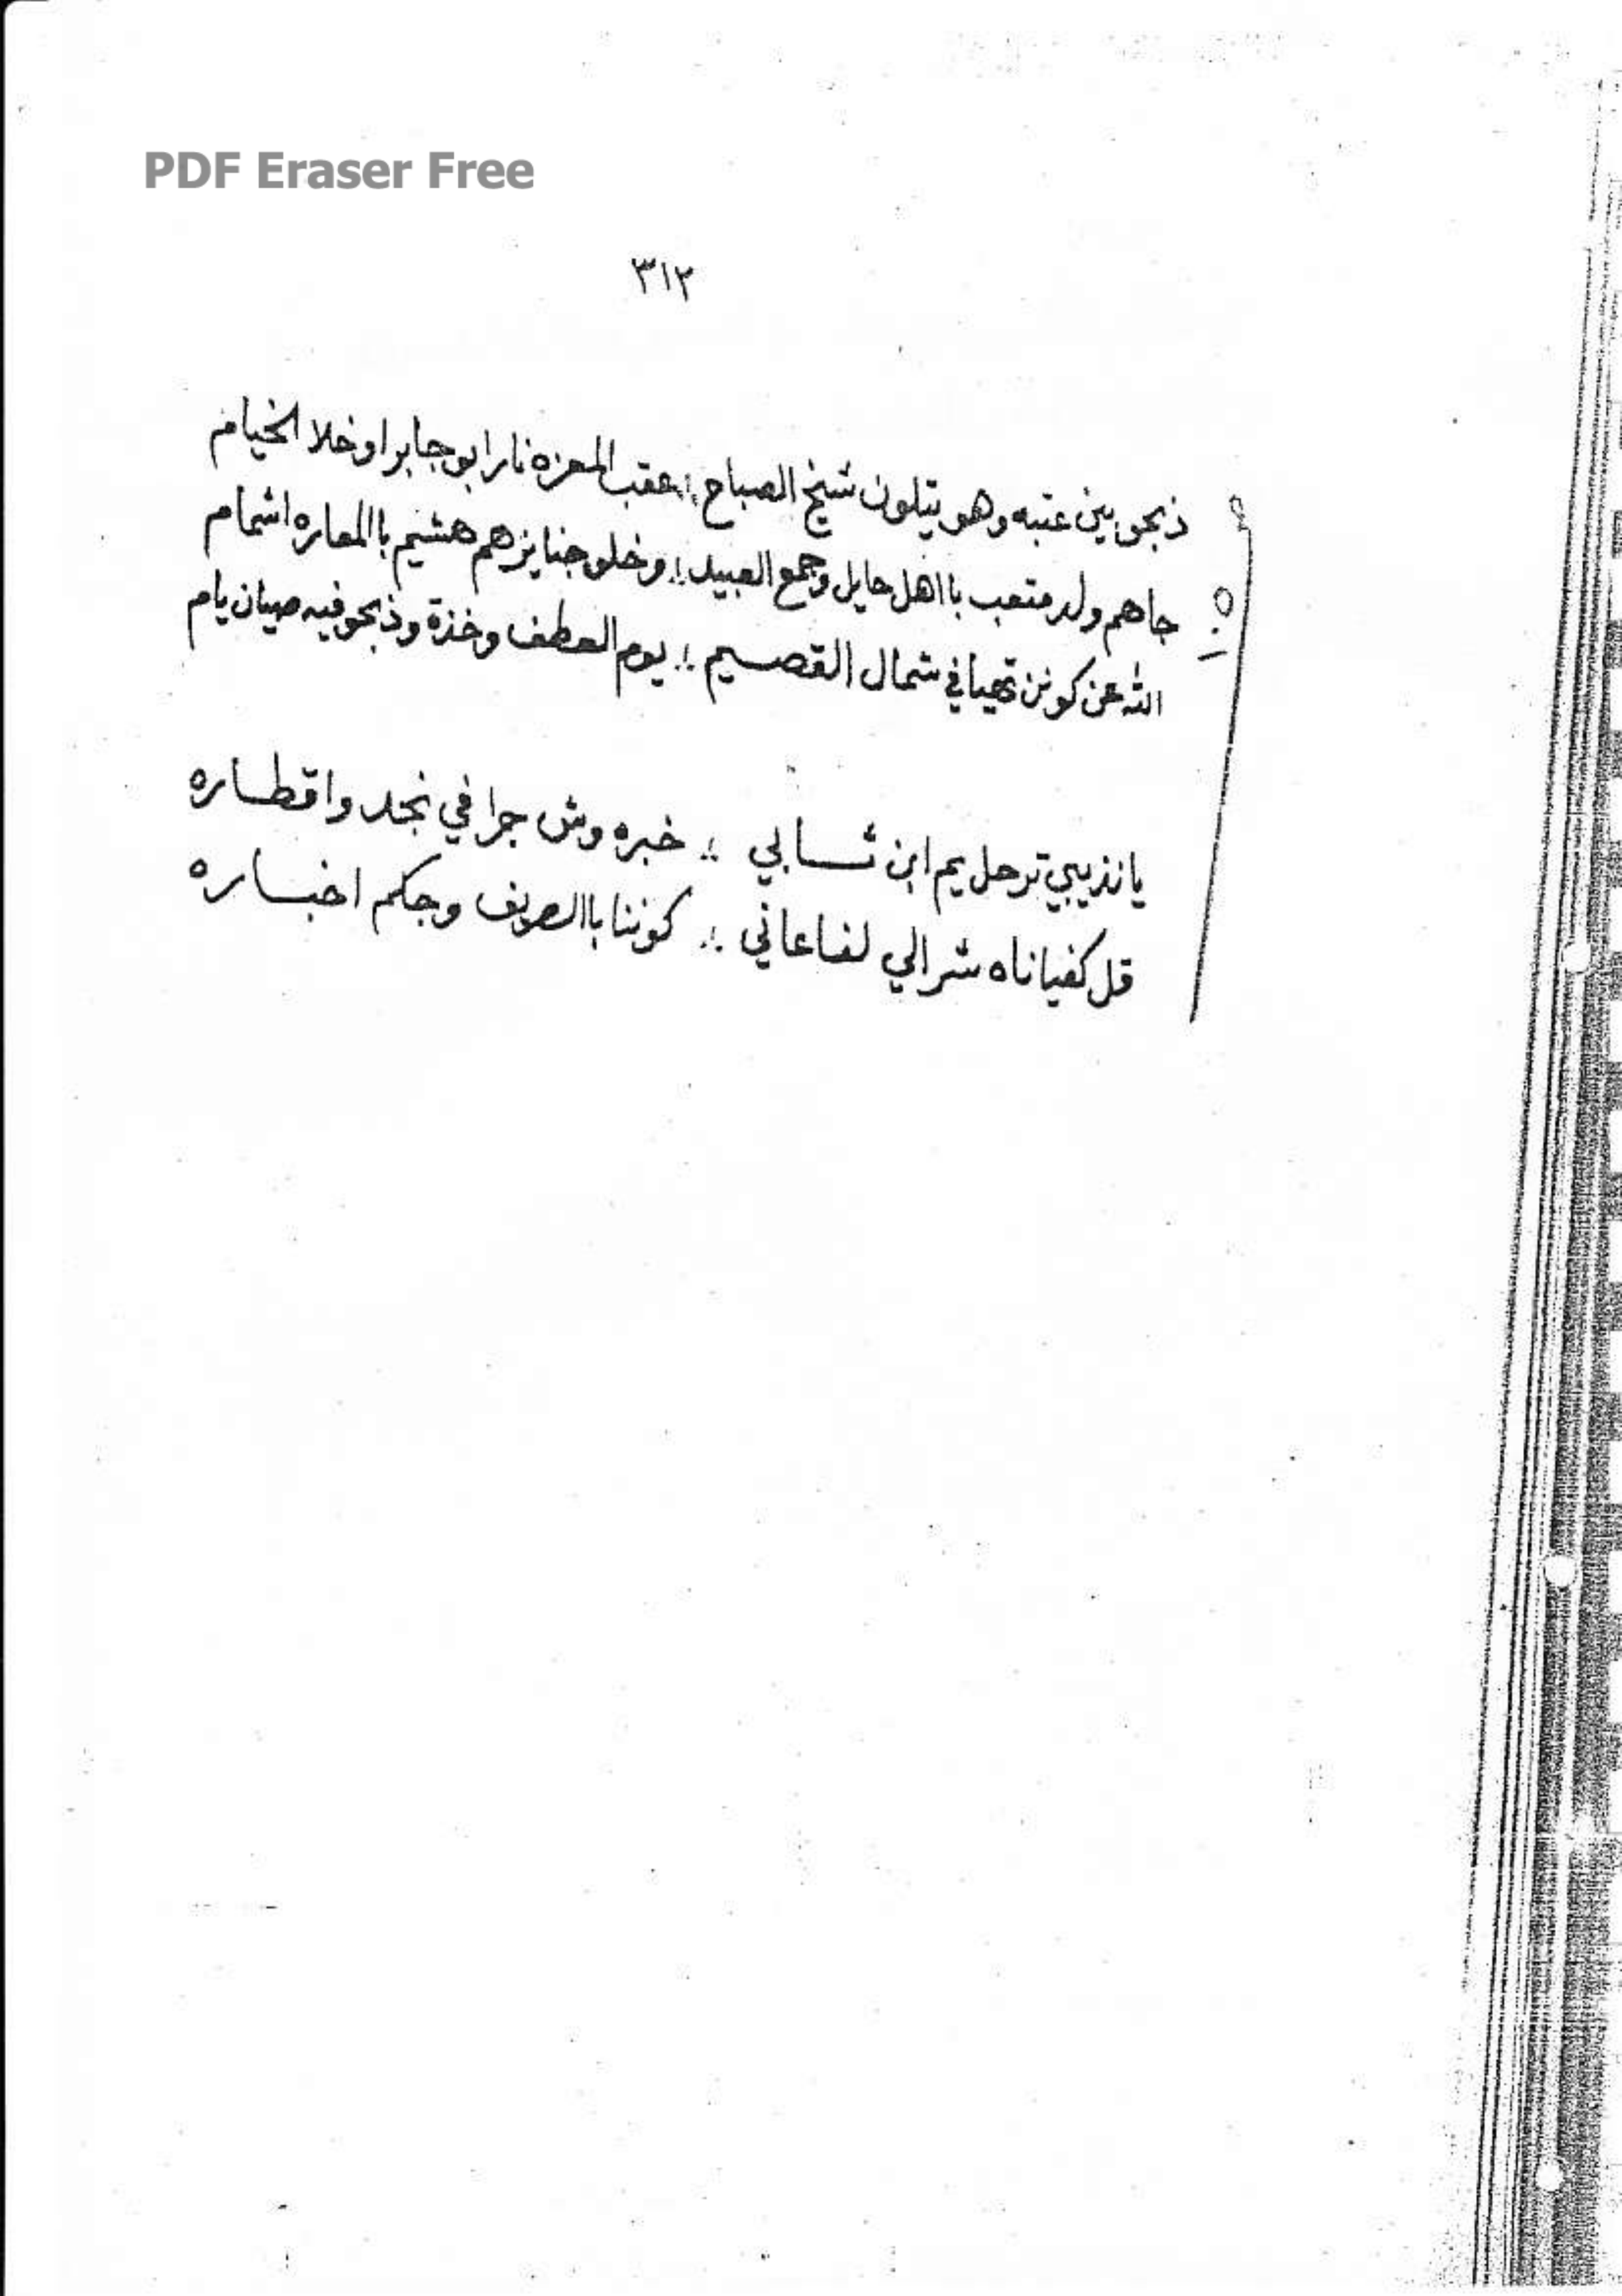 PDF Eraser Free
٣١٢
ذبحو بين عتبه وهو يتلون شيخ الصباح ؛ عقب المعزه نار ابو جابر اوخلا الخيام
جاهم ولد متعب بااهل حايل وجمع العبيد ؛ وخلو جنايزهم هشيم باالمعاره اشمام
الله عن كونن تهيا في شمال القصيم ؛ يوم العطف وخذة وذبحو فيه صبيان يام
يانذيبي ترحل يم ابن ثسابي ؛ خبره وش جرا في نجد واقطاره
قل كفياناه شرالي لفاعاني ؛ كوننا باالصريف وجكم اخباره